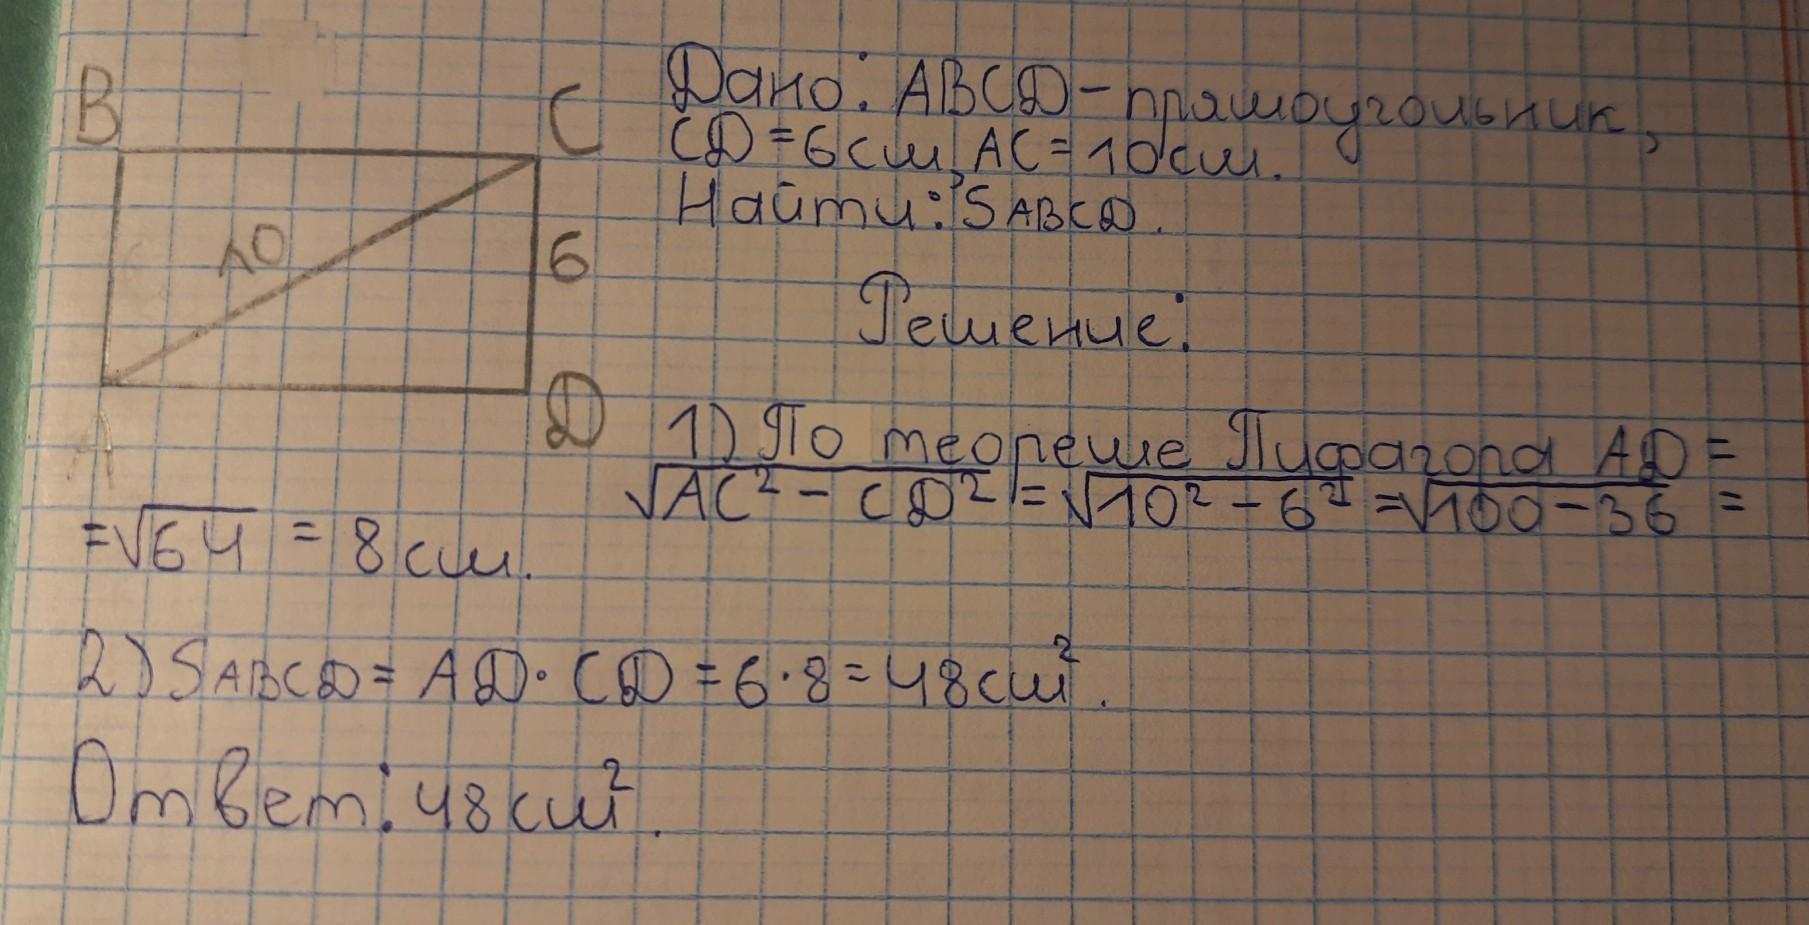 B
C
10
6
A
D
Дано: ABCD - прямоугольник,
CD = 6 см, AC = 10 см.
Найти: SABCD.
Решение:
1) По теореме Пифагора AD =
√AC² - CD² = √10² - 6² = √100 - 36 =
= √64 = 8 см.
2) SABCD = AD · CD = 6 · 8 = 48 см².
Ответ: 48 см².